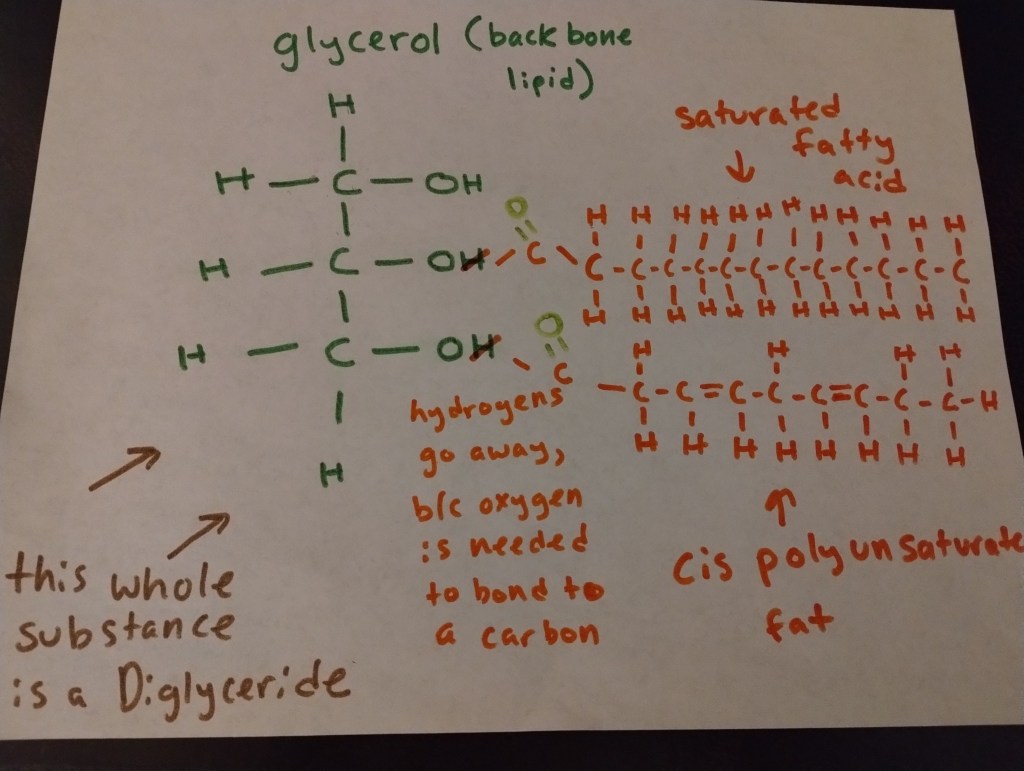 glycerol (backbone
lipid)
saturated
fatty
acid
H
H — C — OH
O
H H H H H H H H H H H H
H — C — OH
C
C-C-C-C-C-C-C-C-C-C-C-C
H H H H H H H H H H H H
O
H H H H
H — C — OH
C
C-C=C-C-C=C-C-C-H
H H H H H H H H
H
hydrogens
go away,
b/c oxygen
is needed
to bond to
a carbon
cis polyunsaturate
fat
this whole
substance
is a Diglyceride